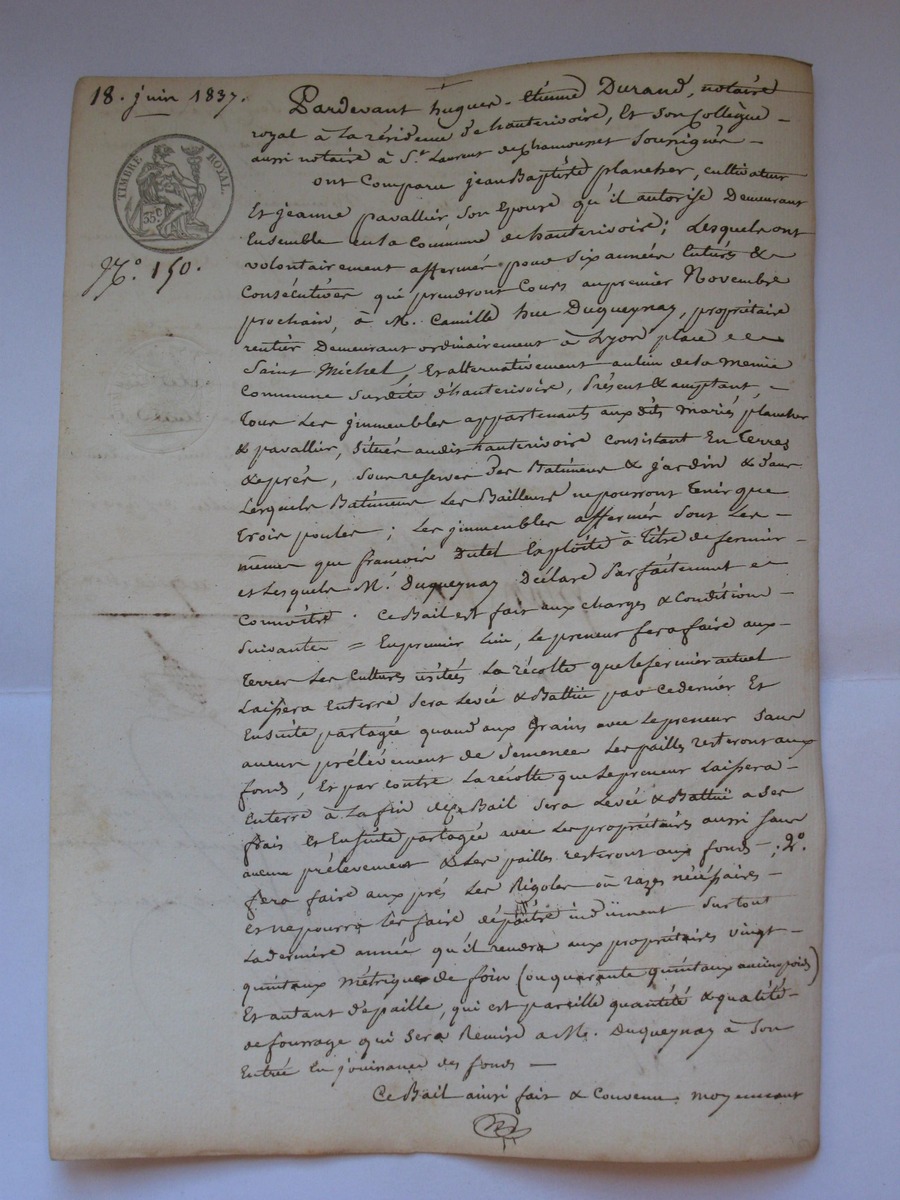 18. juin 1837.
TIMBRE ROYAL.
35 c
N.º 150.
Pardevant hugues-Etienne Durand, notaire
royal à La résidence de hauterivoire, Et Son Collègue -
aussi notaire à S.t Laurent de chamousset Soussignés -
ont Comparu jean Baptiste plancher, cultivateur
Et jeanne pavallier Son Epouse qu'il autorise Demeurant
Ensemble en la Commune de hauterivoire; Lesquels ont
volontairement affermé pour Six années Entières &
Consécutives qui prendront Cours au premier Novembre
prochain, à M. Camille hue Duqueynay, propriétaire
rentier Demeurant ordinairement à Lyon place
Saint Michel, Et alternativement au lieu de la memie
Commune Susdite d'hauterivoire, Présent & acceptant, -
Tous Les jmmeubles appartenants aux dits mariés plancher
& pavallier, Situés audit hauterivoire consistant En Terres
& prés, Sous reserve des Batimens & jardin & dans
Lesquels Batimens Les Bailleurs ne pourront Tenir que
Trois poules; Les jmmeubles affermés Sont Les -
mêmes que francois Dutel Exploite à titre de fermier -
et Lesquels M. Duqueynay Déclare Parfaitement
Connoître. Ce Bail est fait aux charges & Conditions -
Suivantes = En premier lieu, Le preneur fera faire aux -
Terres Les Cultures usitées La récolte que le fermier actuel
Laissera En terre Sera Levée & Battue par ce dernier Et
Ensuite partagée quand aux Grains avec Le preneur Sans
aucun prélèvement de Semences Les pailles resteront aux
fonds, Et par contre La récolte que Le preneur Laissera -
En terre à La fin de Ce Bail Sera Levée & Battue a Ses
frais Et Ensuite partagée avec Les propriétaires aussi Sans
aucun prélèvement & Les pailles resteront aux fonds -; 2.º
fera faire aux prés Les Rigoles ou razes nécessaires -
et ne pourra les faire dépaître indûment Surtout
La dernière année qu'il rendra aux propriétaires vingt -
quintaux métriques de foin (ou quarante quintaux ancien poids)
Et autant de paille, qui est pareille quantité & qualité -
de fourrage qui Sera Remise a M. Duqueynay à Son
Entrée En jouissance des fonds -
Ce Bail ainsi fait & Convenu moyennant